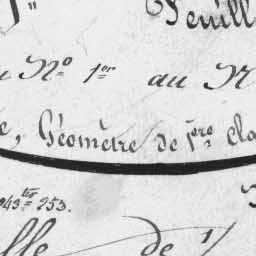 Feuill
N° 1er au N
Géomètre de 1ère cla
243ter 253.
lle de 1